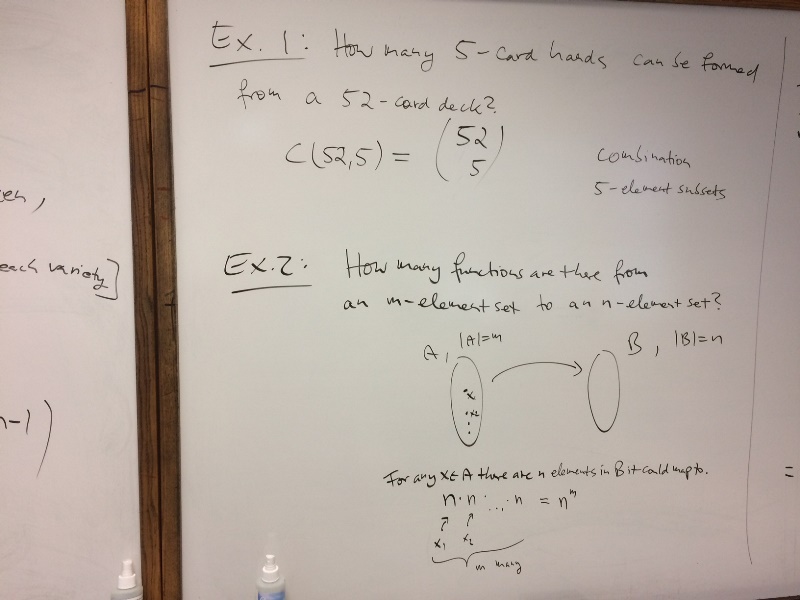 een,
each variety]
n-1)
Ex. 1: How many 5-card hands can be formed
from a 52-card deck?
C(52,5) = (52
5)
Combination
5-element subsets
Ex. 2: How many functions are there from
an m-element set to an n-element set?
A, |A|=m
B, |B|=n
x
x2
For any x∈A there are n elements in B it could map to.
n·n·...·n = n^m
x1 x2
m many
=